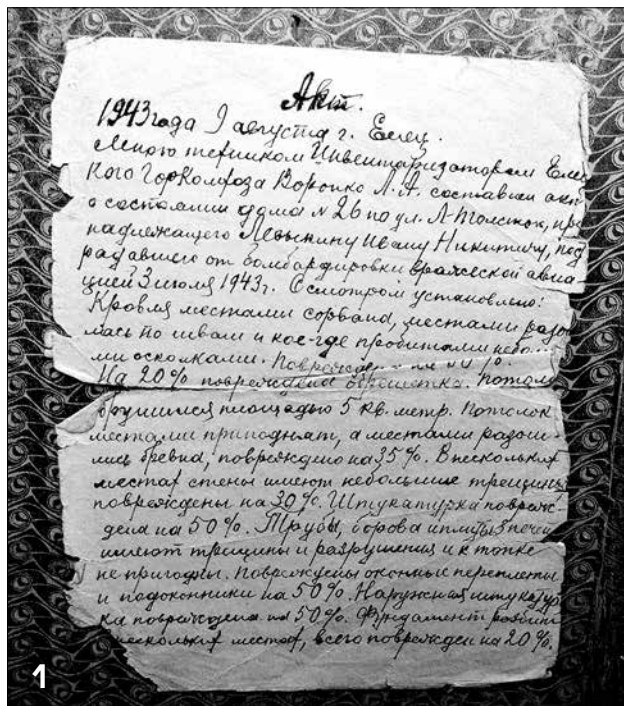 Акт.
1943 года 9 августа г. Елец.
Мною техником Инвентаризатором Елец
кого Горкомхоза Воропко Л.А. составлен акт
о состоянии дома № 26 по ул. Л-Толстого, при
надлежащего Левыкину Ивану Никитичу, пост
радавшего от бомбардировки вражеской авиа
цией 3 июля 1943 г. Осмотром установлено:
Кровля местами сорвана, местами разош
лась по швам и кое-где пробита
ми осколками.
На 20% повреждена обрешетка. Потолок
обрушился площадью 5 кв. метр. Потолок
местами приподнят, а местами разош-
лись бревна, повреждено на 35%. В нескольких
местах стены имеют небольшие трещины
повреждены на 30%. Штукатурка повреж-
дена на 50%. Трубы, борова и плиты 3 печей
имеют трещины и разрушения и к топке
не пригодны. Повреждены оконные переплеты
и подоконники на 50%. Наружная штукатур
ка повреждена на 50%. Фундамент разбит
нескольких местах, всего поврежден на 20%.
1